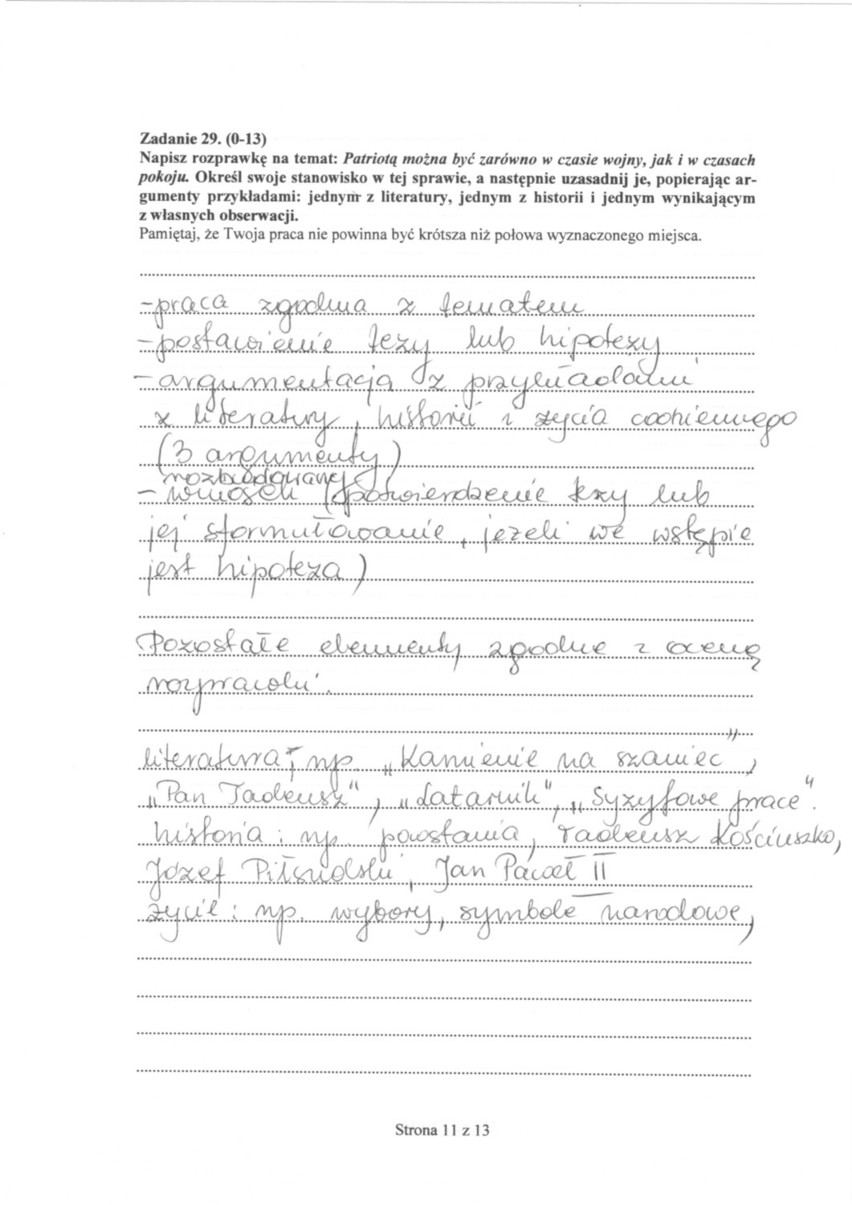 Zadanie 29. (0-13)
Napisz rozprawkę na temat: Patriotą można być zarówno w czasie wojny, jak i w czasach
pokoju. Określ swoje stanowisko w tej sprawie, a następnie uzasadnij je, popierając ar-
gumenty przykładami: jednym z literatury, jednym z historii i jednym wynikającym
z własnych obserwacji.
Pamiętaj, że Twoja praca nie powinna być krótsza niż połowa wyznaczonego miejsca.
- praca zgodna z tematem
- postawienie tezy lub hipotezy
- argumentacja z przykładami
z literatury, historii i życia codziennego
(3 argumenty)
rozbudowanej
- wniosek (potwierdzenie tezy lub
jej sformułowanie, jeżeli we wstępie
jest hipoteza)
Pozostałe elementy zgodne z oceną
rozprawki.
literatura: np. „Kamienie na szaniec",
„Pan Tadeusz", „Latarnik", „Syzyfowe prace".
historia: np. powstania, Tadeusz Kościuszko,
Józef Piłsudski, Jan Paweł II
życie: np. wybory, symbole narodowe,
Strona 11 z 13